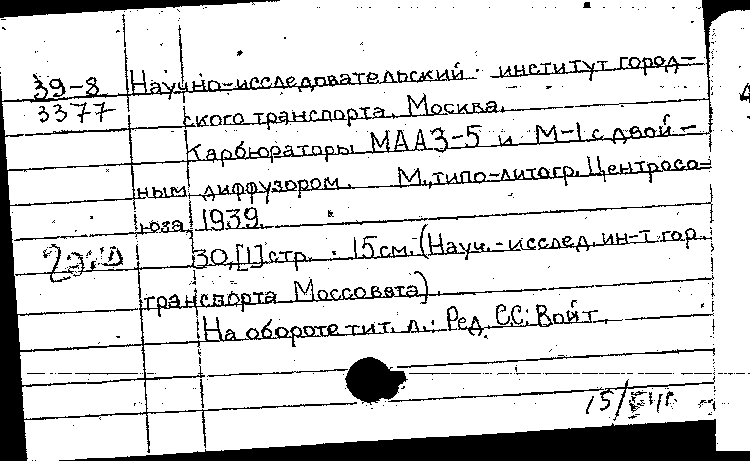 39-8 Научно-исследовательский институт город-
3377 ского транспорта. Москва.
Карбюраторы МААЗ-5 и М-1 с двой-
ным диффузором. М., типо-литогр. Центросо-
юза, 1939.
30,[1] стр. 15 см. (Науч.-исслед. ин-т гор.
транспорта Моссовета).
На обороте тит. л.: Ред. С.С. Войт.
15/